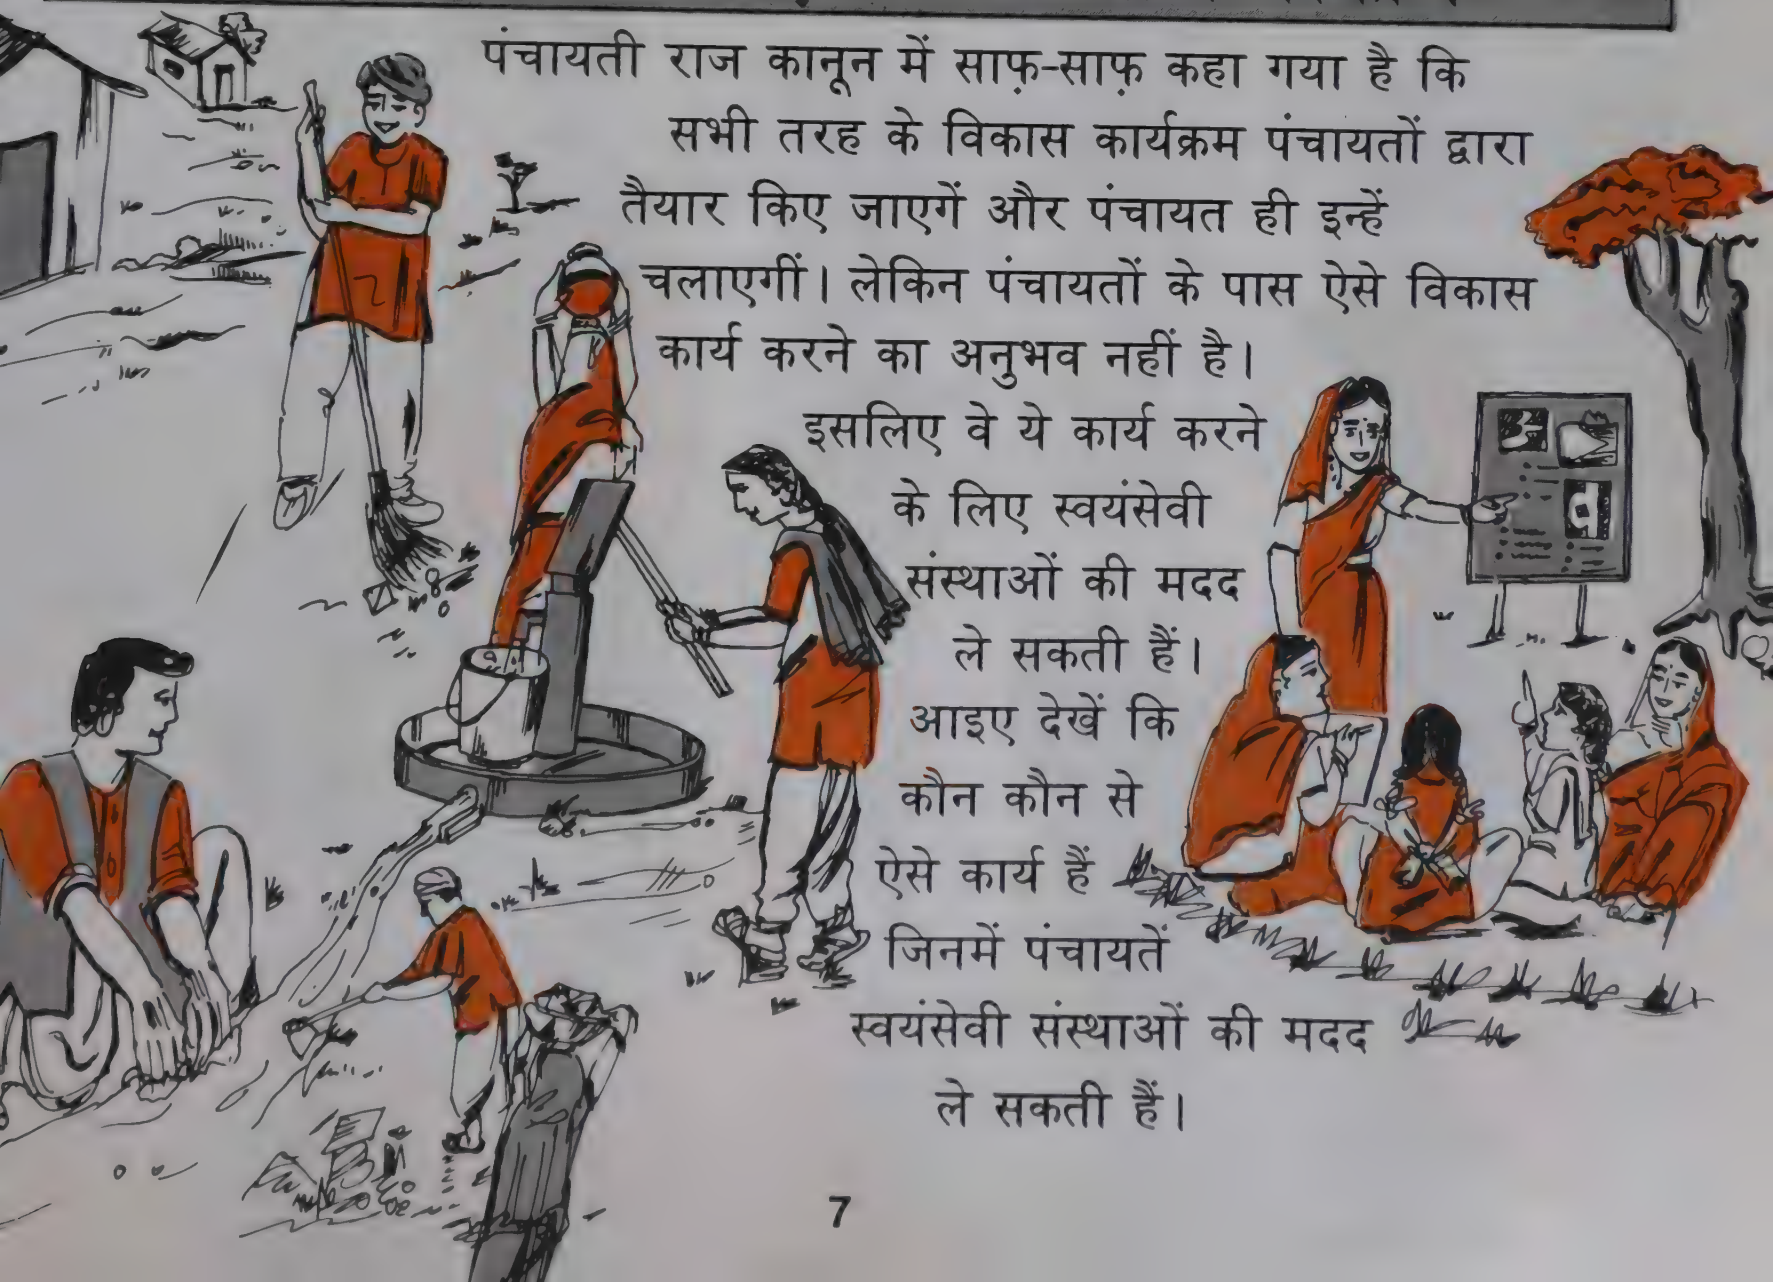 पंचायती राज कानून में साफ़-साफ़ कहा गया है कि
सभी तरह के विकास कार्यक्रम पंचायतों द्वारा
तैयार किए जाएगें और पंचायत ही इन्हें
चलाएगीं। लेकिन पंचायतों के पास ऐसे विकास
कार्य करने का अनुभव नहीं है।
इसलिए वे ये कार्य करने
के लिए स्वयंसेवी
संस्थाओं की मदद
ले सकती हैं।
आइए देखें कि
कौन कौन से
ऐसे कार्य हैं
जिनमें पंचायतें
स्वयंसेवी संस्थाओं की मदद
ले सकती हैं।
7